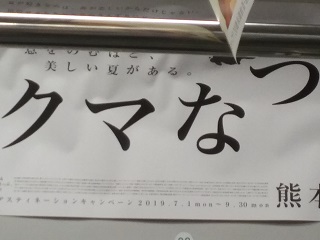 息をのむほど、
美しい夏がある。
クマなつ
熊本
デスティネーションキャンペーン 2019.7.1mon～9.30mon